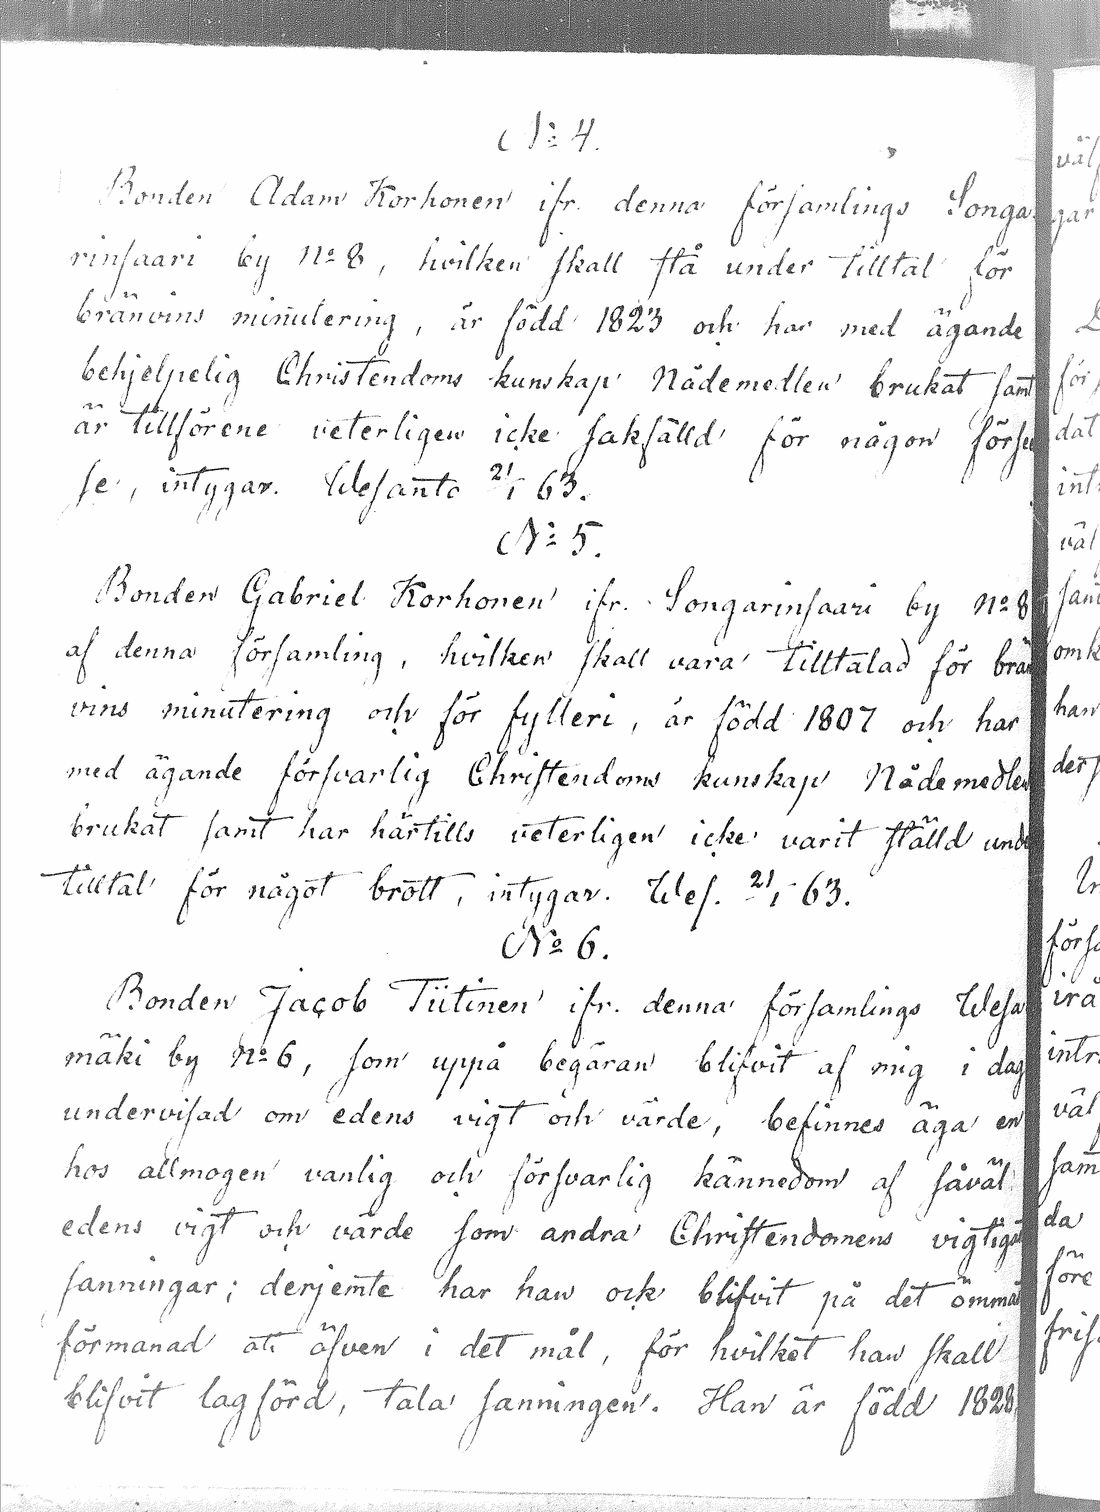 No 4.
Bonden Adam Korhonen ifr. denna församlings Songa-
rinsaari by No 8, hvilken skall stå under tilltal för
bränvins minutering, är född 1823 och har med ägande
behjelpelig Christendoms kunskap Nådemedlen brukat samt
är tillförene veterligen icke sakfälld för någon förse
se, intygar. Wesanto 21/1 63.
No 5.
Bonden Gabriel Korhonen ifr. Songarinsaari by No 8
af denna församling, hvilken skall vara tilltalad för brän
vins minutering och för fylleri, är född 1807 och har
med ägande försvarlig Christendoms kunskap Nådemedlen
brukat samt har härtills veterligen icke varit ställd unde
tilltal för något brott, intygar. Wes. 21/1 63.
No 6.
Bonden Jacob Tiitinen ifr. denna församlings Wesa
mäki by No 6, som uppå begäran blifvit af mig i dag
undervisad om edens vigt och värde, befinnes äga en
hos allmogen vanlig och försvarlig kännedom af såväl
edens vigt och värde som andra Christendomens vigtigst
sanningar; derjemte har han ock blifvit på det ömmas
förmanad att äfven i det mål, för hvilket han skall
blifvit lagförd, tala sanningen. Han är född 1828,
väl
gar
för
dat
int
väl
sam
omk
han
der
förs
irå
intr
väl
sam
da
före
fris